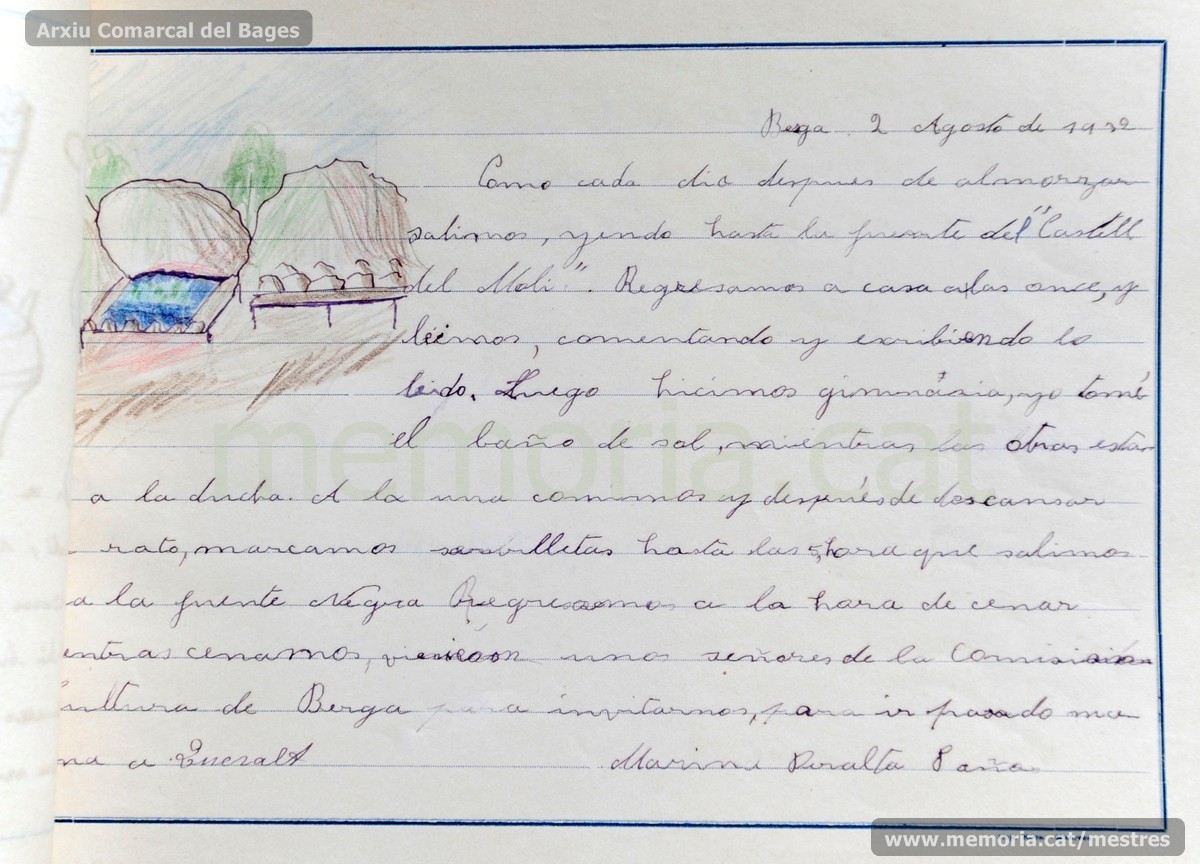 Arxiu Comarcal del Bages
Berga 2 Agosto de 1932
Como cada dia despues de almorzar
salimos, yendo hasta la fuente del "Castell
del Moli". Regresamos a casa a las once, y
leimos, comentando y escribiendo lo
leido. Luego hicimos gimnásia, yo tomé
el baño de sol, mientras las otras estan
a la ducha. A la una comimos y después de descansar
rato, marcamos servilletas hasta las 5, hora que salimos
a la fuente Negra Regresamos a la hora de cenar
entras cenamos, vienieron unos señores de la Comisión
ultura de Berga para invitarnos, para ir pasado ma
na a Queralt Marina Peralta
memoria.cat
www.memoria.cat/mestres